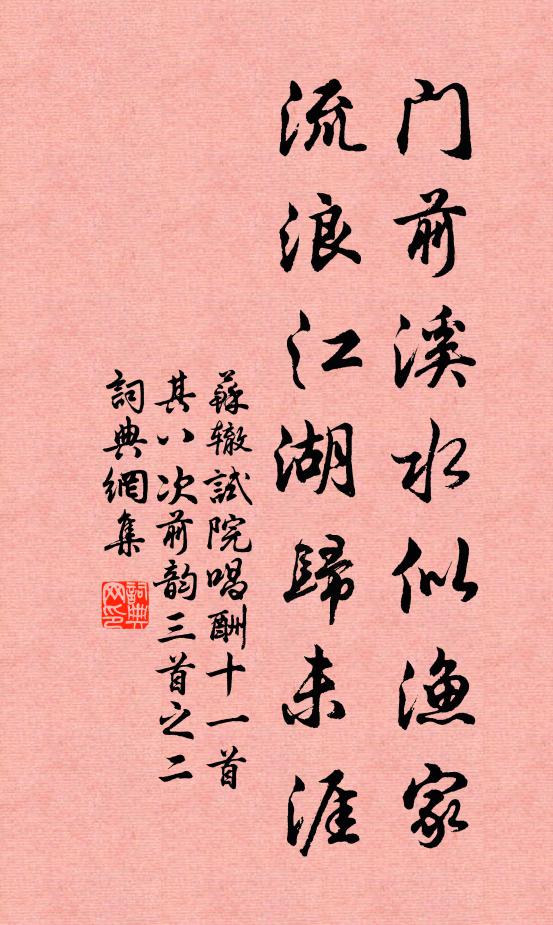 门前溪水似渔家
流浪江湖歸未涯
蘇辙試院唱酬十一首
其八次前韵三首之二
詞典網集
詞典网印